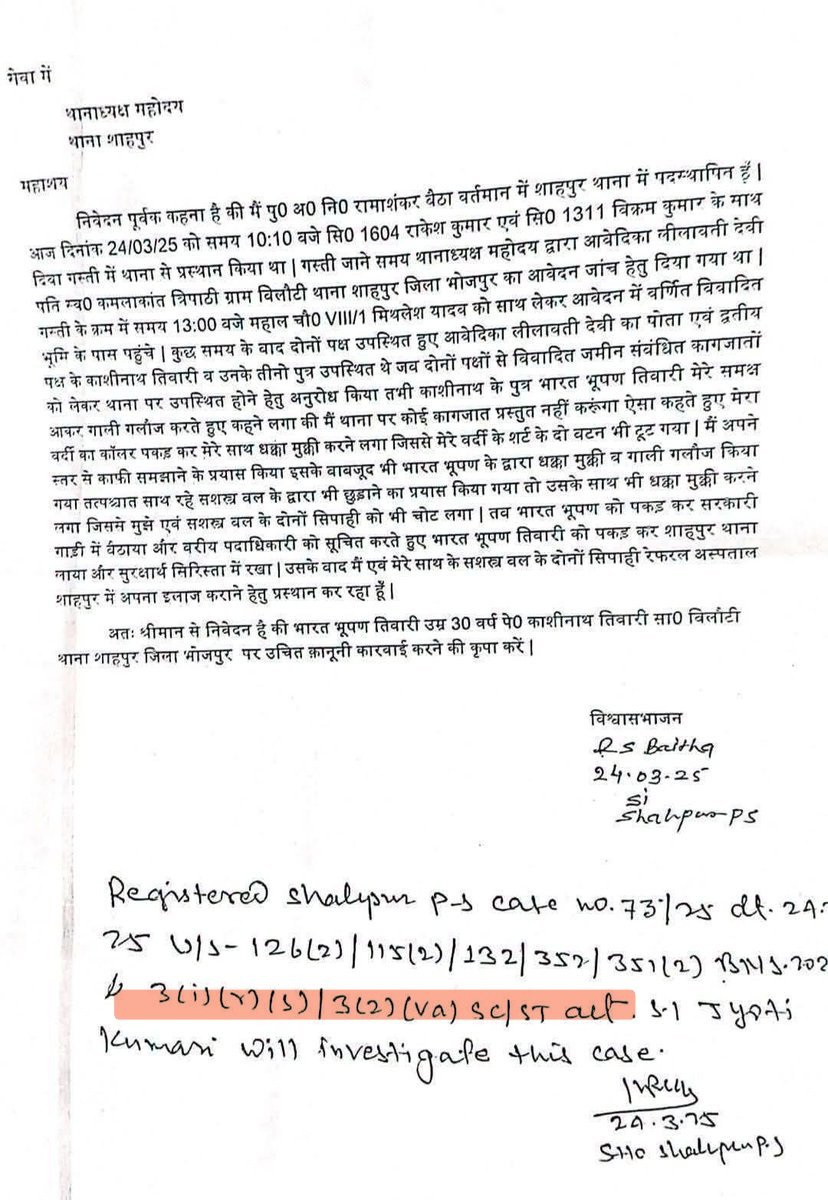 सेवा में
थानाध्यक्ष महोदय
थाना शाहपुर
महाशय
निवेदन पूर्वक कहना है की मैं पु0 अ0 नि0 रामाशंकर बैठा वर्तमान में शाहपुर थाना में पदस्थापित हूँ |
आज दिनांक 24/03/25 को समय 10:10 बजे सि0 1604 राकेश कुमार एवं सि0 1311 विक्रम कुमार के साथ
दिवा गस्ती में थाना से प्रस्थान किया था | गस्ती जाने समय थानाध्यक्ष महोदय द्वारा आवेदिका लीलावती देवी
पति स्व0 कमलाकांत त्रिपाठी ग्राम विलौटी थाना शाहपुर जिला भोजपुर का आवेदन जांच हेतु दिया गया था |
गस्ती के क्रम में समय 13:00 बजे महाल चौ0 VIII/1 मिथलेश यादव को साथ लेकर आवेदन में वर्णित विवादित
भूमि के पास पहुंचे | कुछ समय के बाद दोनों पक्ष उपस्थित हुए आवेदिका लीलावती देवी का पोता एवं द्वतीय
पक्ष के काशीनाथ तिवारी व उनके तीनो पुत्र उपस्थित थे जब दोनों पक्षों से विवादित जमीन संबंधित कागजातों
को लेकर थाना पर उपस्थित होने हेतु अनुरोध किया तभी काशीनाथ के पुत्र भारत भूषण तिवारी मेरे समक्ष
आकर गाली गलौज करते हुए कहने लगा की मैं थाना पर कोई कागजात प्रस्तुत नहीं करूंगा ऐसा कहते हुए मेरा
वर्दी का कॉलर पकड़ कर मेरे साथ धक्का मुक्की करने लगा जिससे मेरे वर्दी के शर्ट के दो वटन भी टूट गया | मैं अपने
स्तर से काफी समझाने के प्रयास किया इसके वावजूद भी भारत भूषण के द्वारा धक्का मुक्की व गाली गलौज किया
गया तत्पश्चात साथ रहे सशस्त्र वल के द्वारा भी छुड़ाने का प्रयास किया गया तो उसके साथ भी धक्का मुक्की करने
लगा जिससे मुझे एवं सशस्त्र वल के दोनों सिपाही को भी चोट लगा | तव भारत भूषण को पकड़ कर सरकारी
गाड़ी में वैठाया और वरीय पदाधिकारी को सूचित करते हुए भारत भूषण तिवारी को पकड़ कर शाहपुर थाना
लाया और सुरक्षार्थ सिरिस्ता में रखा | उसके वाद मैं एवं मेरे साथ के सशस्त्र वल के दोनों सिपाही रेफरल अस्पताल
शाहपुर में अपना इलाज कराने हेतु प्रस्थान कर रहा हूँ |
अतः श्रीमान से निवेदन है की भारत भूषण तिवारी उम्र 30 वर्ष पे0 काशीनाथ तिवारी सा0 विलौटी
थाना शाहपुर जिला भोजपुर पर उचित क़ानूनी कारवाई करने की कृपा करें |
विश्वासभाजन
RS Baitha
24.03.25
SI
Shahpur PS
Registered Shahpur P.S case no. 73/25 dt. 24.
25 U/S- 126(2)/115(2)/132/352/351(2) BNS.202
& 3(i)(r)(s)/3(2)(va) SC/ST act. S.I Jyoti
Kumari will investigate this case.
24.3.25
SHO Shahpur P.S